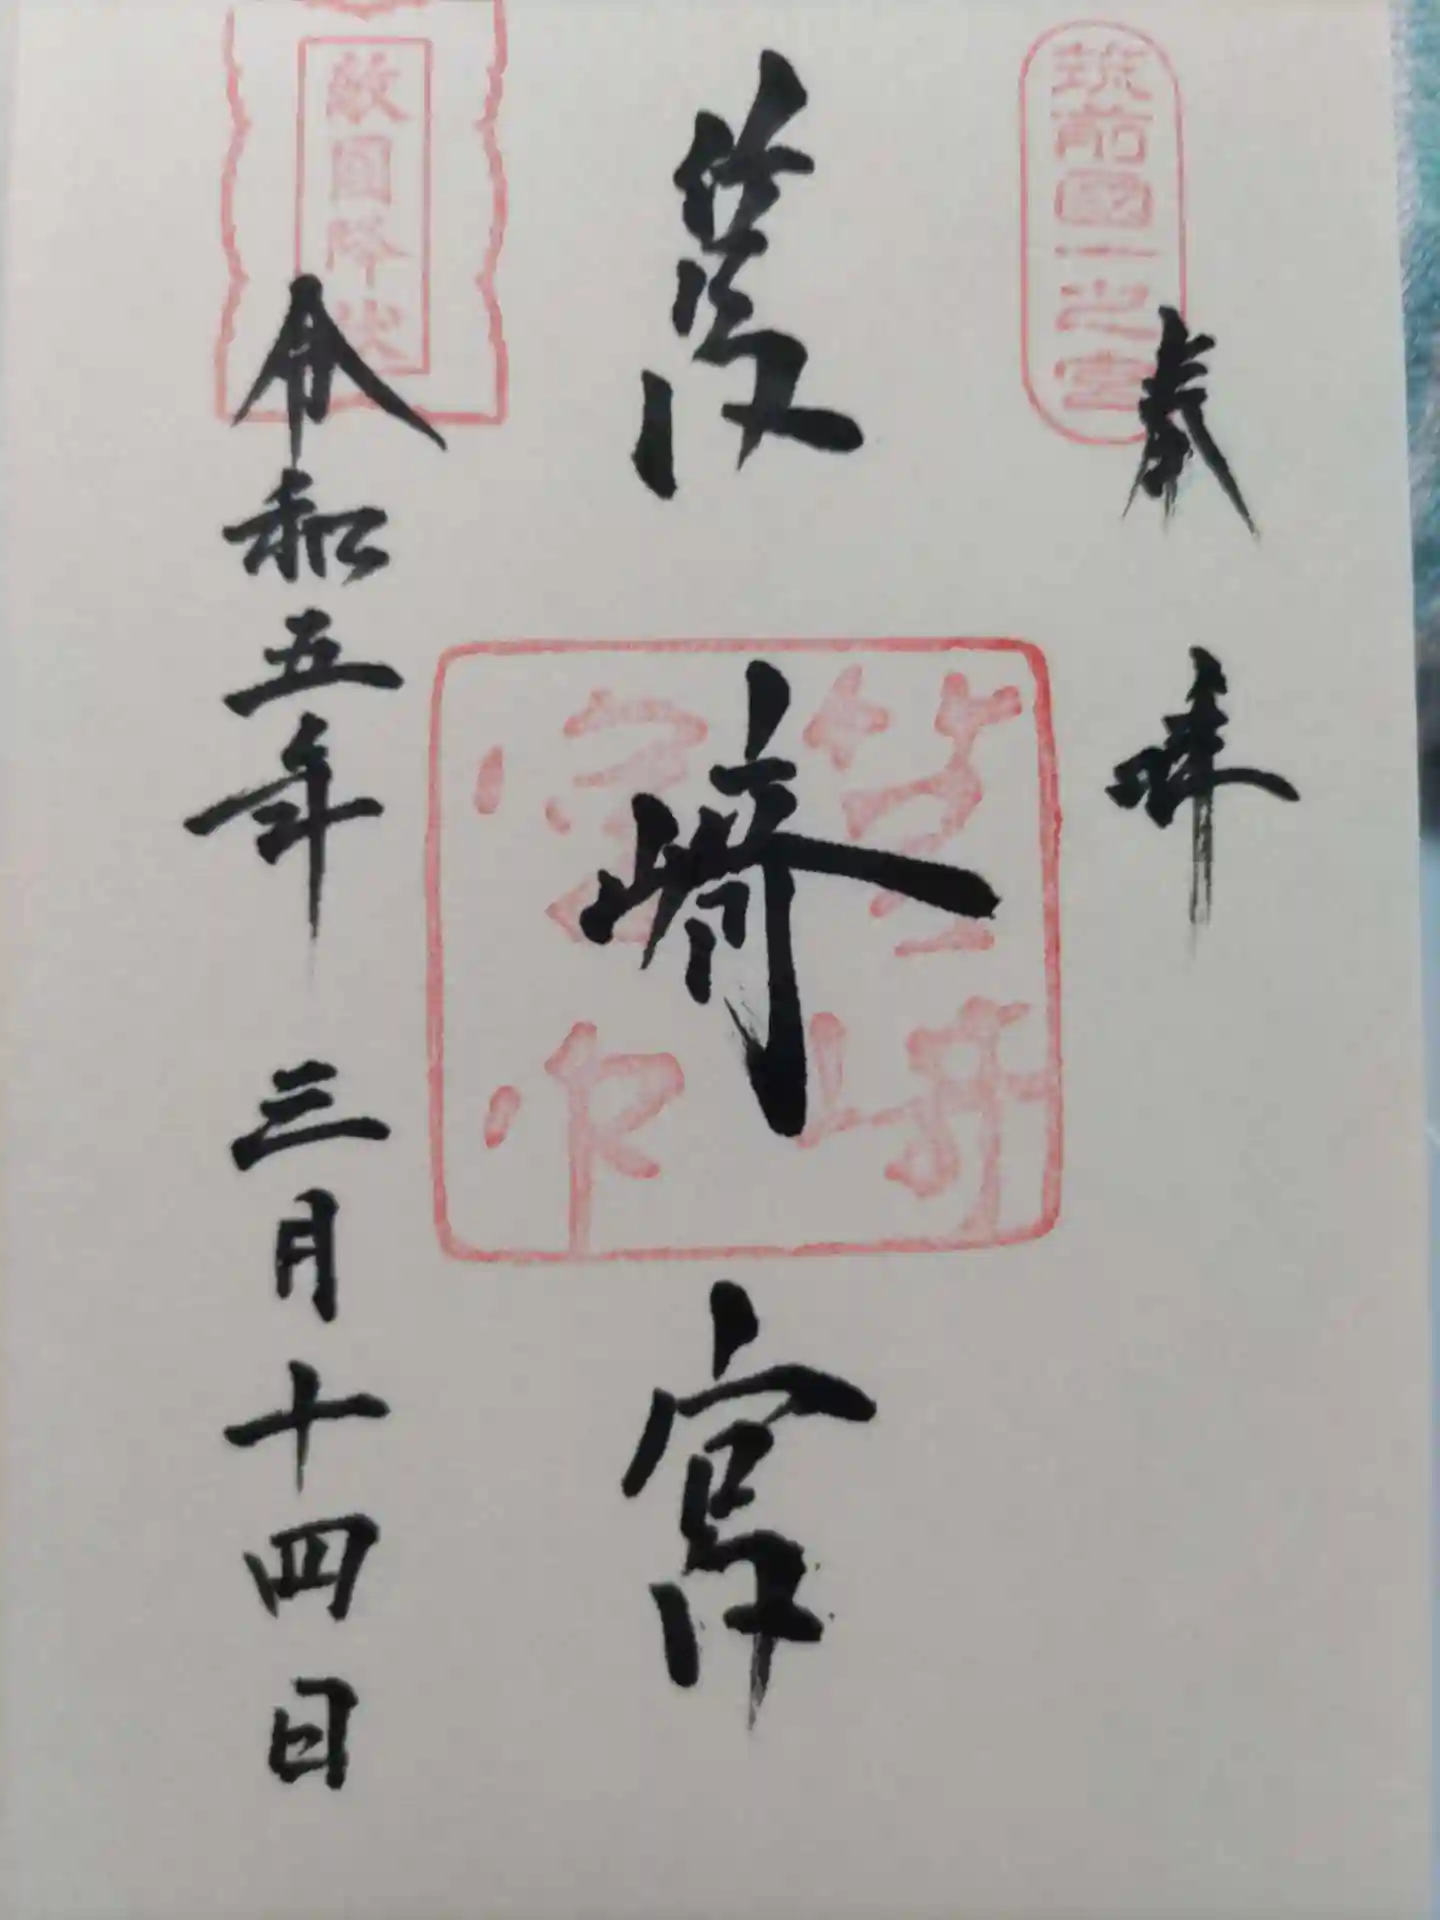 奉拝
筑前國一之宮
筥崎宮
筥崎宮印
敵國降伏
令和五年 三月十四日